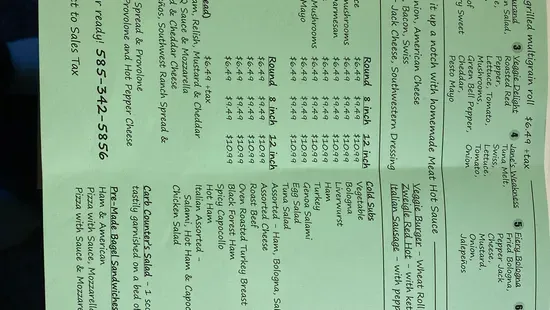 grilled multigrain roll $6.49 +tax
3 Veggie Delight
Roasted Red
Pepper,
Lettuce, Tomato,
Mushrooms,
Green Bell Pepper,
Cheddar,
Pesto Mayo
4 Jane's Weakness
Tuna Melt,
Swiss,
Lettuce,
Tomato,
Onion
5 Fiery Bologna
Fried Bologna,
Pepper Jack
Cheese,
Mustard,
Onion,
Jalapeños
6
it up a notch with homemade Meat Hot Sauce
nion, American Cheese
, Bacon, Swiss
Jack Cheese, Southwestern Dressing
Veggie Burger – Wheat Roll
Zweigle Red Hot – with ket
Italian Sausage – with pepp
Round 8 inch 12 inch
$6.49 $9.49 $10.99
$6.49 $9.49 $10.99
$6.49 $9.49 $10.99
$6.49 $9.49 $10.99
$6.49 $9.49 $10.99
$6.49 $9.49 $10.99
Round 8 inch 12 inch
$6.49 $9.49 $10.99
$6.49 $9.49 $10.99
$6.49 $9.49 $10.99
$6.49 $9.49 $10.99
$6.49 +tax
am, Relish, Mustard & Cheddar
Q Sauce & Mozzarella
d & Cheddar Cheese
ños, Southwest Ranch Spread &
Spread & Provolone
Provolone and Hot Pepper Cheese
r ready 585-342-5856
ct to Sales Tax
Cold Subs
Vegetable
Bologna
Liverwurst
Ham
Turkey
Genoa Salami
Egg Salad
Tuna Salad
Assorted – Ham, Bologna, Sa
Assorted Cheese
Roast Beef
Oven Roasted Turkey Breast
Black Forest Ham
Spicy Capocollo
Hot Ham
Italian Assorted –
Salami, Hot Ham & Capoc
Chicken Salad
Carb Counter's Salad – 1 sco
tastily garnished on a bed of
Pre-Made Bagel Sandwiches
Ham & American
Pizza with Sauce, Mozzarella
Pizza with Sauce & Mozzare